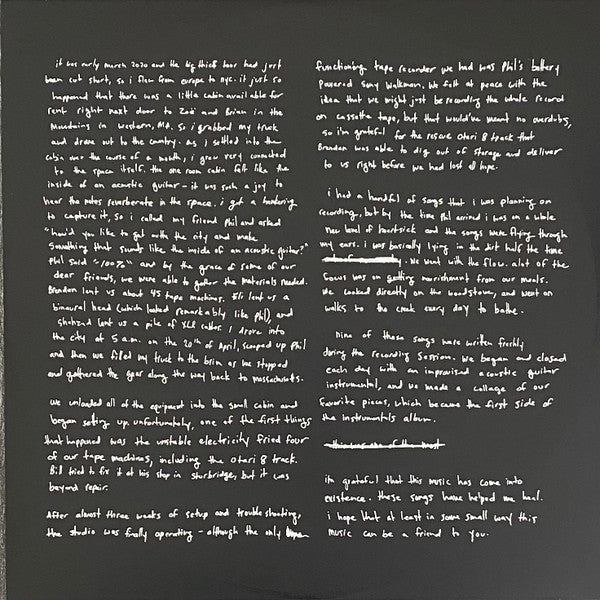 it was early march 2020 and the big thief tour had just
been cut short, so i flew from europe to nyc. it just so
happened that there was a little cabin available for
rent right next door to Zoë and Brian in the
mountains in western, Ma. so i grabbed my truck
and drove out to the country. as i settled into the
cabin over the course of a month, i grew very connected
to the space itself. the one room cabin felt like the
inside of an acoustic guitar - it was such a joy to
hear the notes reverberate in the space. i got a hankering
to capture it, so i called my friend Phil and asked
"how'd you like to get outta the city and make
something that sounds like the inside of an acoustic guitar?"
Phil said "100%" and by the grace of some of our
dear friends, we were able to gather the materials needed.
Brendan lent us about 45 tape machines. Eli lent us a
binaural head (which looked remarkably like Phil), and
shahzad lent us a pile of XLR cables. I drove into
the city at 5 a.m. on the 20th of April, scooped up Phil
and then we filled my truck to the brim as we stopped
and gathered the gear along the way back to massachusetts.
we unloaded all of the equipment into the small cabin and
began setting up. unfortunately, one of the first things
that happened was the unstable electricity fried four
of our tape machines, including the otari 8 track.
Bill tried to fix it at his shop in sturbridge, but it was
beyond repair.
After almost three weeks of setup and trouble shooting,
the studio was finally operating - although the only
functioning tape recorder we had was Phil's battery
powered Sony Walkman. We felt at peace with the
idea that we might just be recording the whole record
on cassette tape, but that would've meant no overdubs,
so i'm grateful for the rescue otari 8 track that
Brendan was able to dig out of storage and deliver
to us right before we had lost all hope.
i had a handful of songs that i was planning on
recording, but by the time Phil arrived i was on a whole
new level of heartsick and the songs were flying through
my ears. i was basically lying in the dirt half the time
. We went with the flow. alot of the
focus was on getting nourishment from our meals.
We cooked directly on the woodstove, and went on
walks to the creek every day to bathe.
Nine of these songs were written freshly
during the recording session. We began and closed
each day with an improvised acoustic guitar
instrumental, and we made a collage of our
favorite pieces, which became the first side of
the instrumentals album.
this was one of the most
im grateful that this music has come into
existence. these songs have helped me heal.
i hope that at least in some small way this
music can be a friend to you.